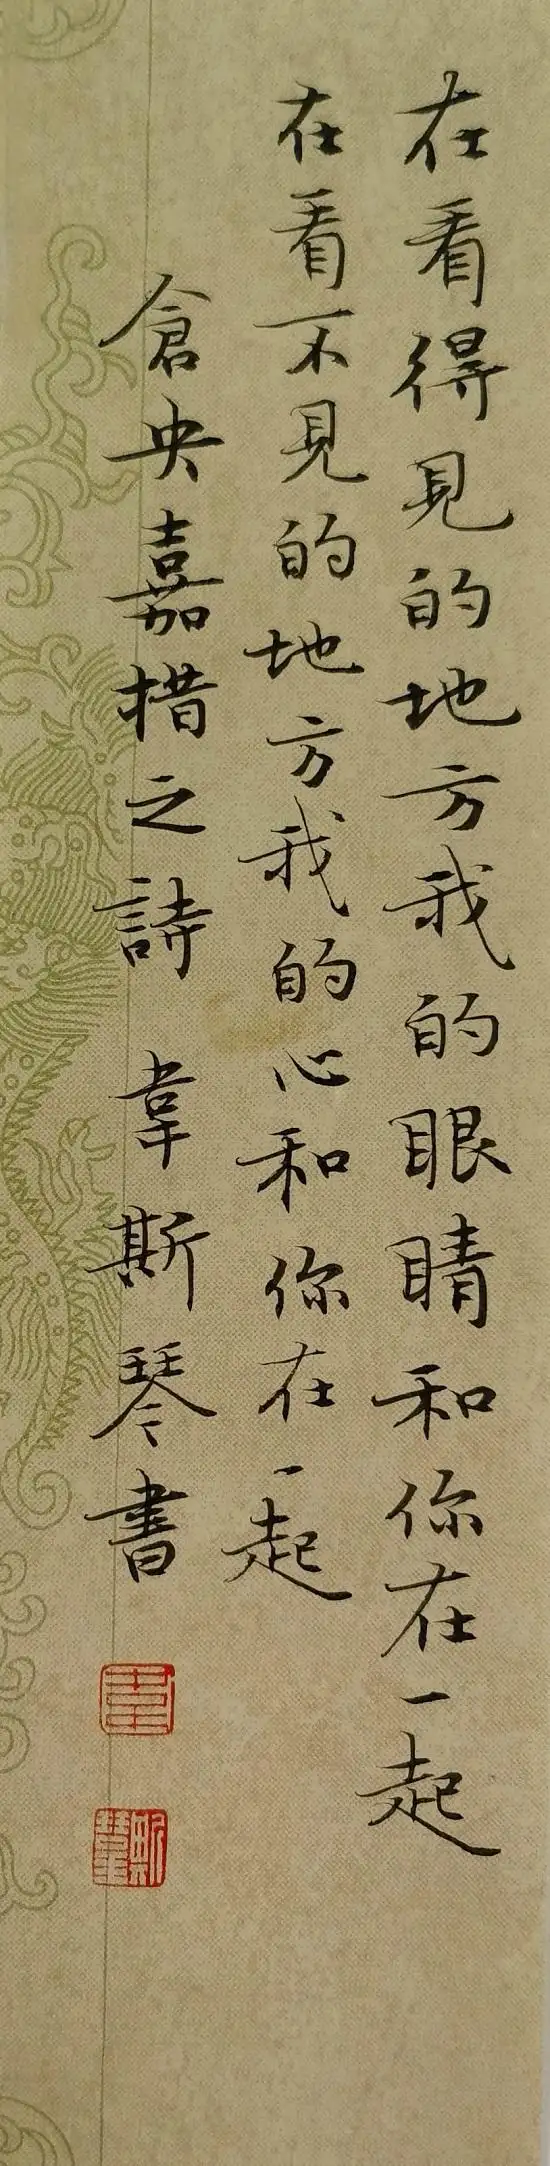 在看得見的地方我的眼睛和你在一起
在看不見的地方我的心和你在一起
倉央嘉措之詩 韋斯琴書
韋
斯琴